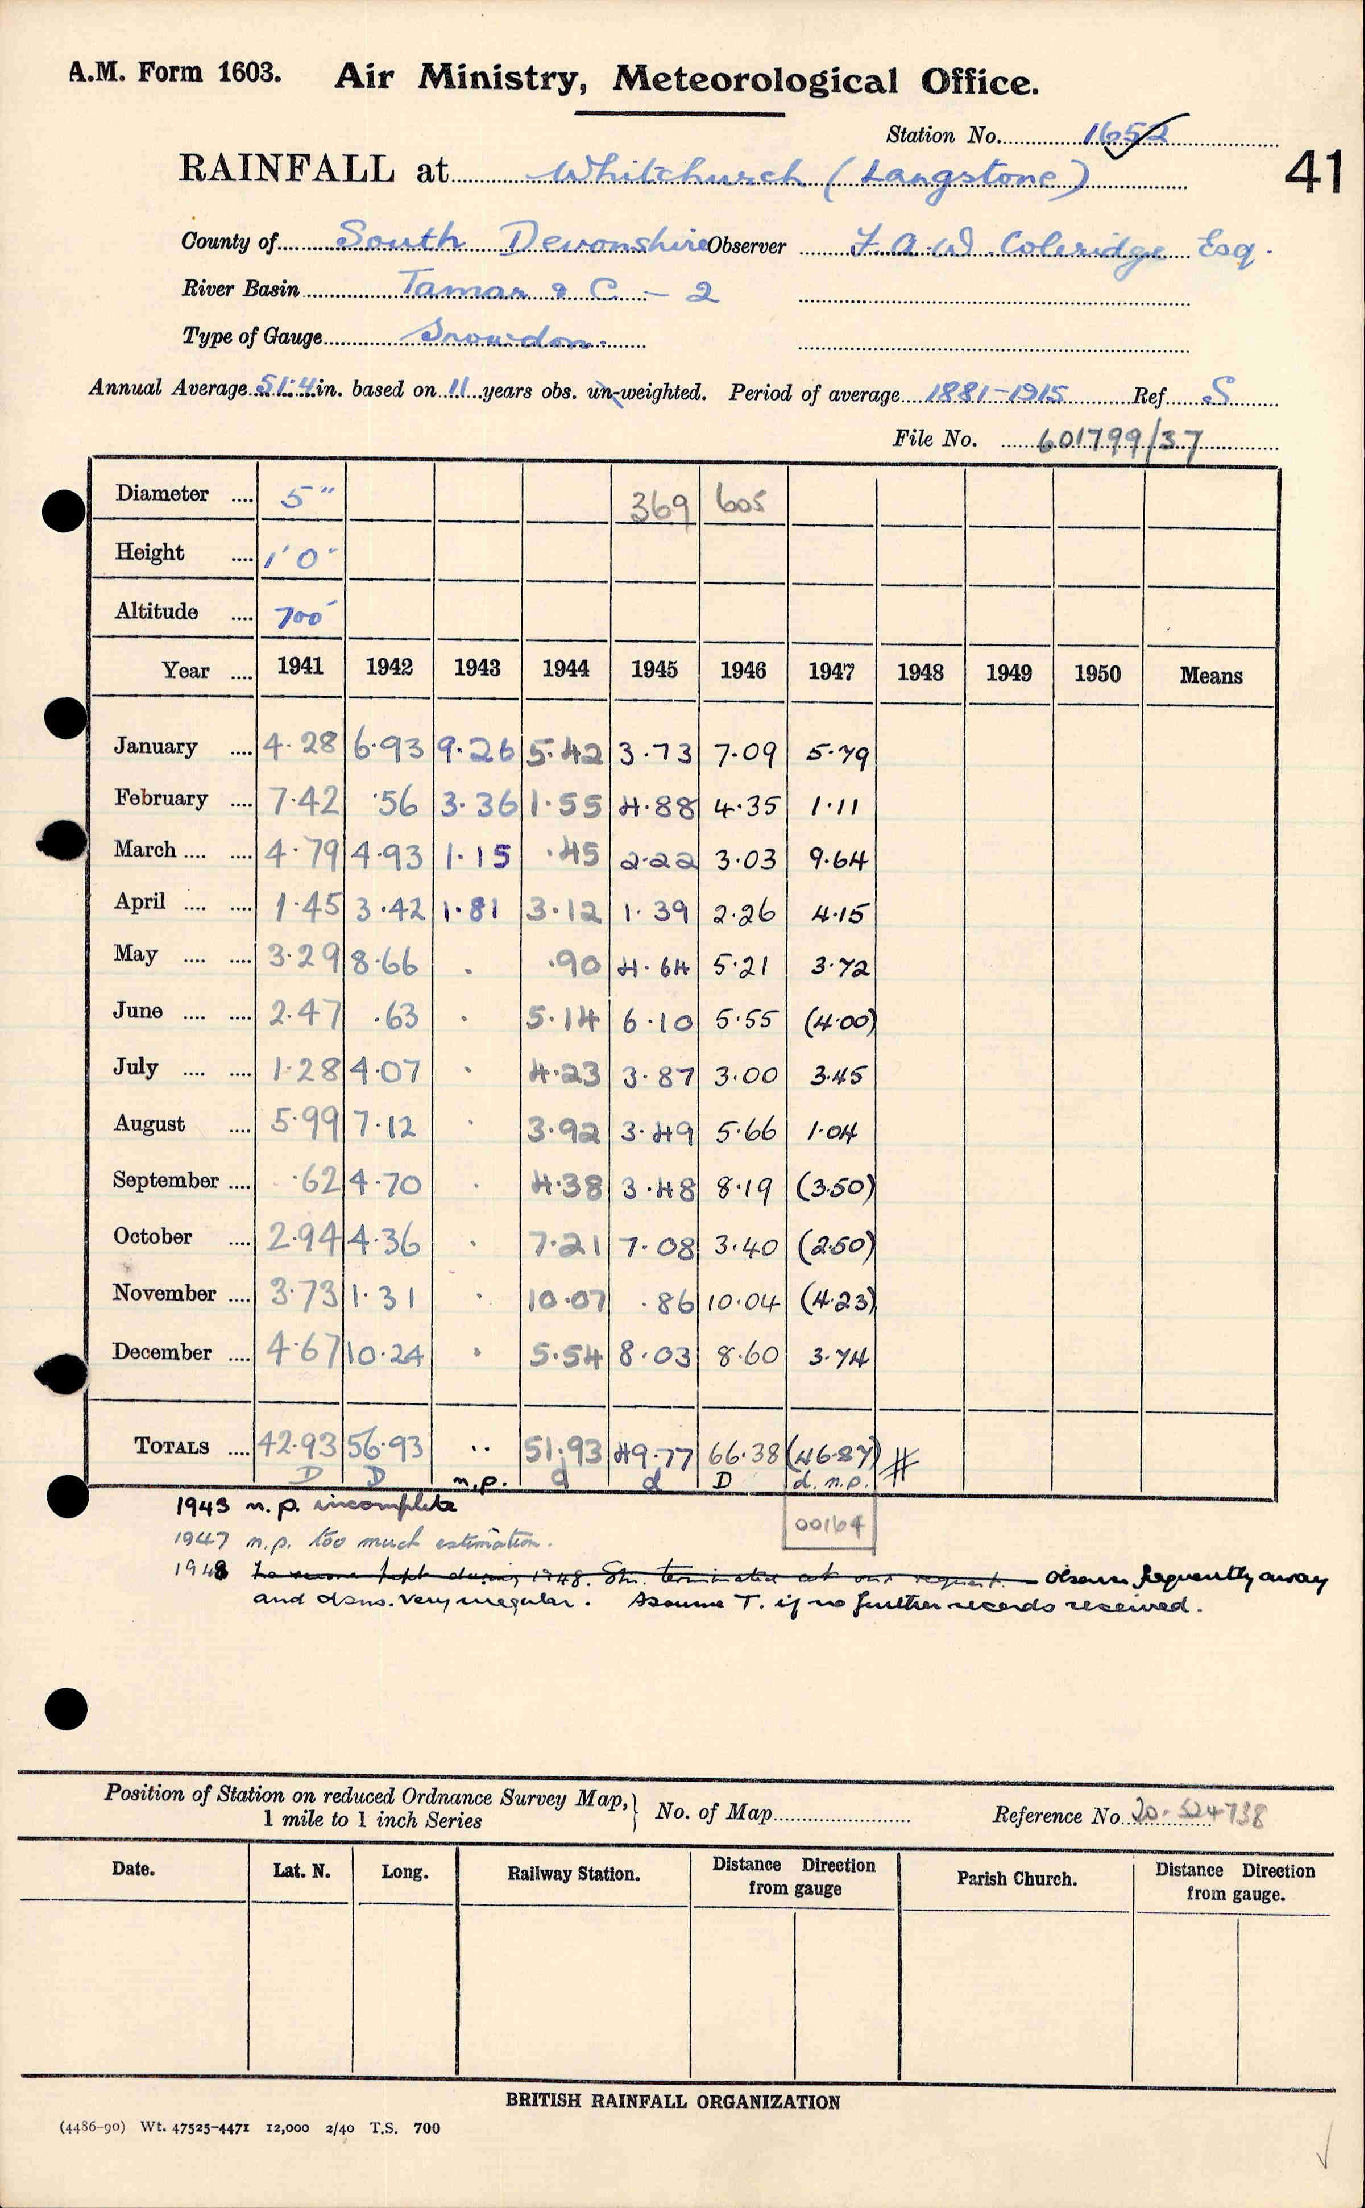 A.M. Form 1603. Air Ministry, Meteorological Office.
Station No. 1652
41
RAINFALL at Whitchurch (Langstone)
County of South Devonshire Observer F. A. W. Coleridge Esq.
River Basin Tamar & C - 2
Type of Gauge Snowdon.
Annual Average 51.4 in. based on 11 years obs. un-weighted. Period of average 1881-1915 Ref S
File No. 601799/37
Diameter .... 5" 369 605
Height .... 1'0"
Altitude .... 700'
Year .... 1941 1942 1943 1944 1945 1946 1947 1948 1949 1950 Means
January .... 4.28 6.93 9.26 5.42 3.73 7.09 5.79
February .... 7.42 .56 3.36 1.55 4.88 4.35 1.11
March .... .... 4.79 4.93 1.15 .45 2.22 3.03 9.64
April .... .... 1.45 3.42 1.81 3.12 1.39 2.26 4.15
May .... .... 3.29 8.66 . .90 4.64 5.21 3.72
June .... .... 2.47 .63 . 5.14 6.10 5.55 (4.00)
July .... .... 1.28 4.07 . 4.23 3.87 3.00 3.45
August .... 5.99 7.12 . 3.92 3.49 5.66 1.04
September .... .62 4.70 . 4.38 3.48 8.19 (3.50)
October .... 2.94 4.36 . 7.21 7.08 3.40 (2.50)
November .... 3.73 1.31 . 10.07 .86 10.04 (4.23)
December .... 4.67 10.24 . 5.54 8.03 8.60 3.74
TOTALS .... 42.93 56.93 .. 51.93 49.77 66.38 (46.87) #
D D n.p. d d D d. n.p.
1943 n.p. incomplete
00164
1947 n.p. too much estimation.
1948 No record kept during 1948. Stn. terminated at our request. Observer frequently away
and obsns. very irregular. Assume T. if no further records received.
Position of Station on reduced Ordnance Survey Map,
1 mile to 1 inch Series
No. of Map
Reference No 20-524738
Date. Lat. N. Long. Railway Station. Distance Direction from gauge Parish Church. Distance Direction from gauge.
BRITISH RAINFALL ORGANIZATION
(4486-90) Wt. 47525-4471 12,000 2/40 T.S. 700